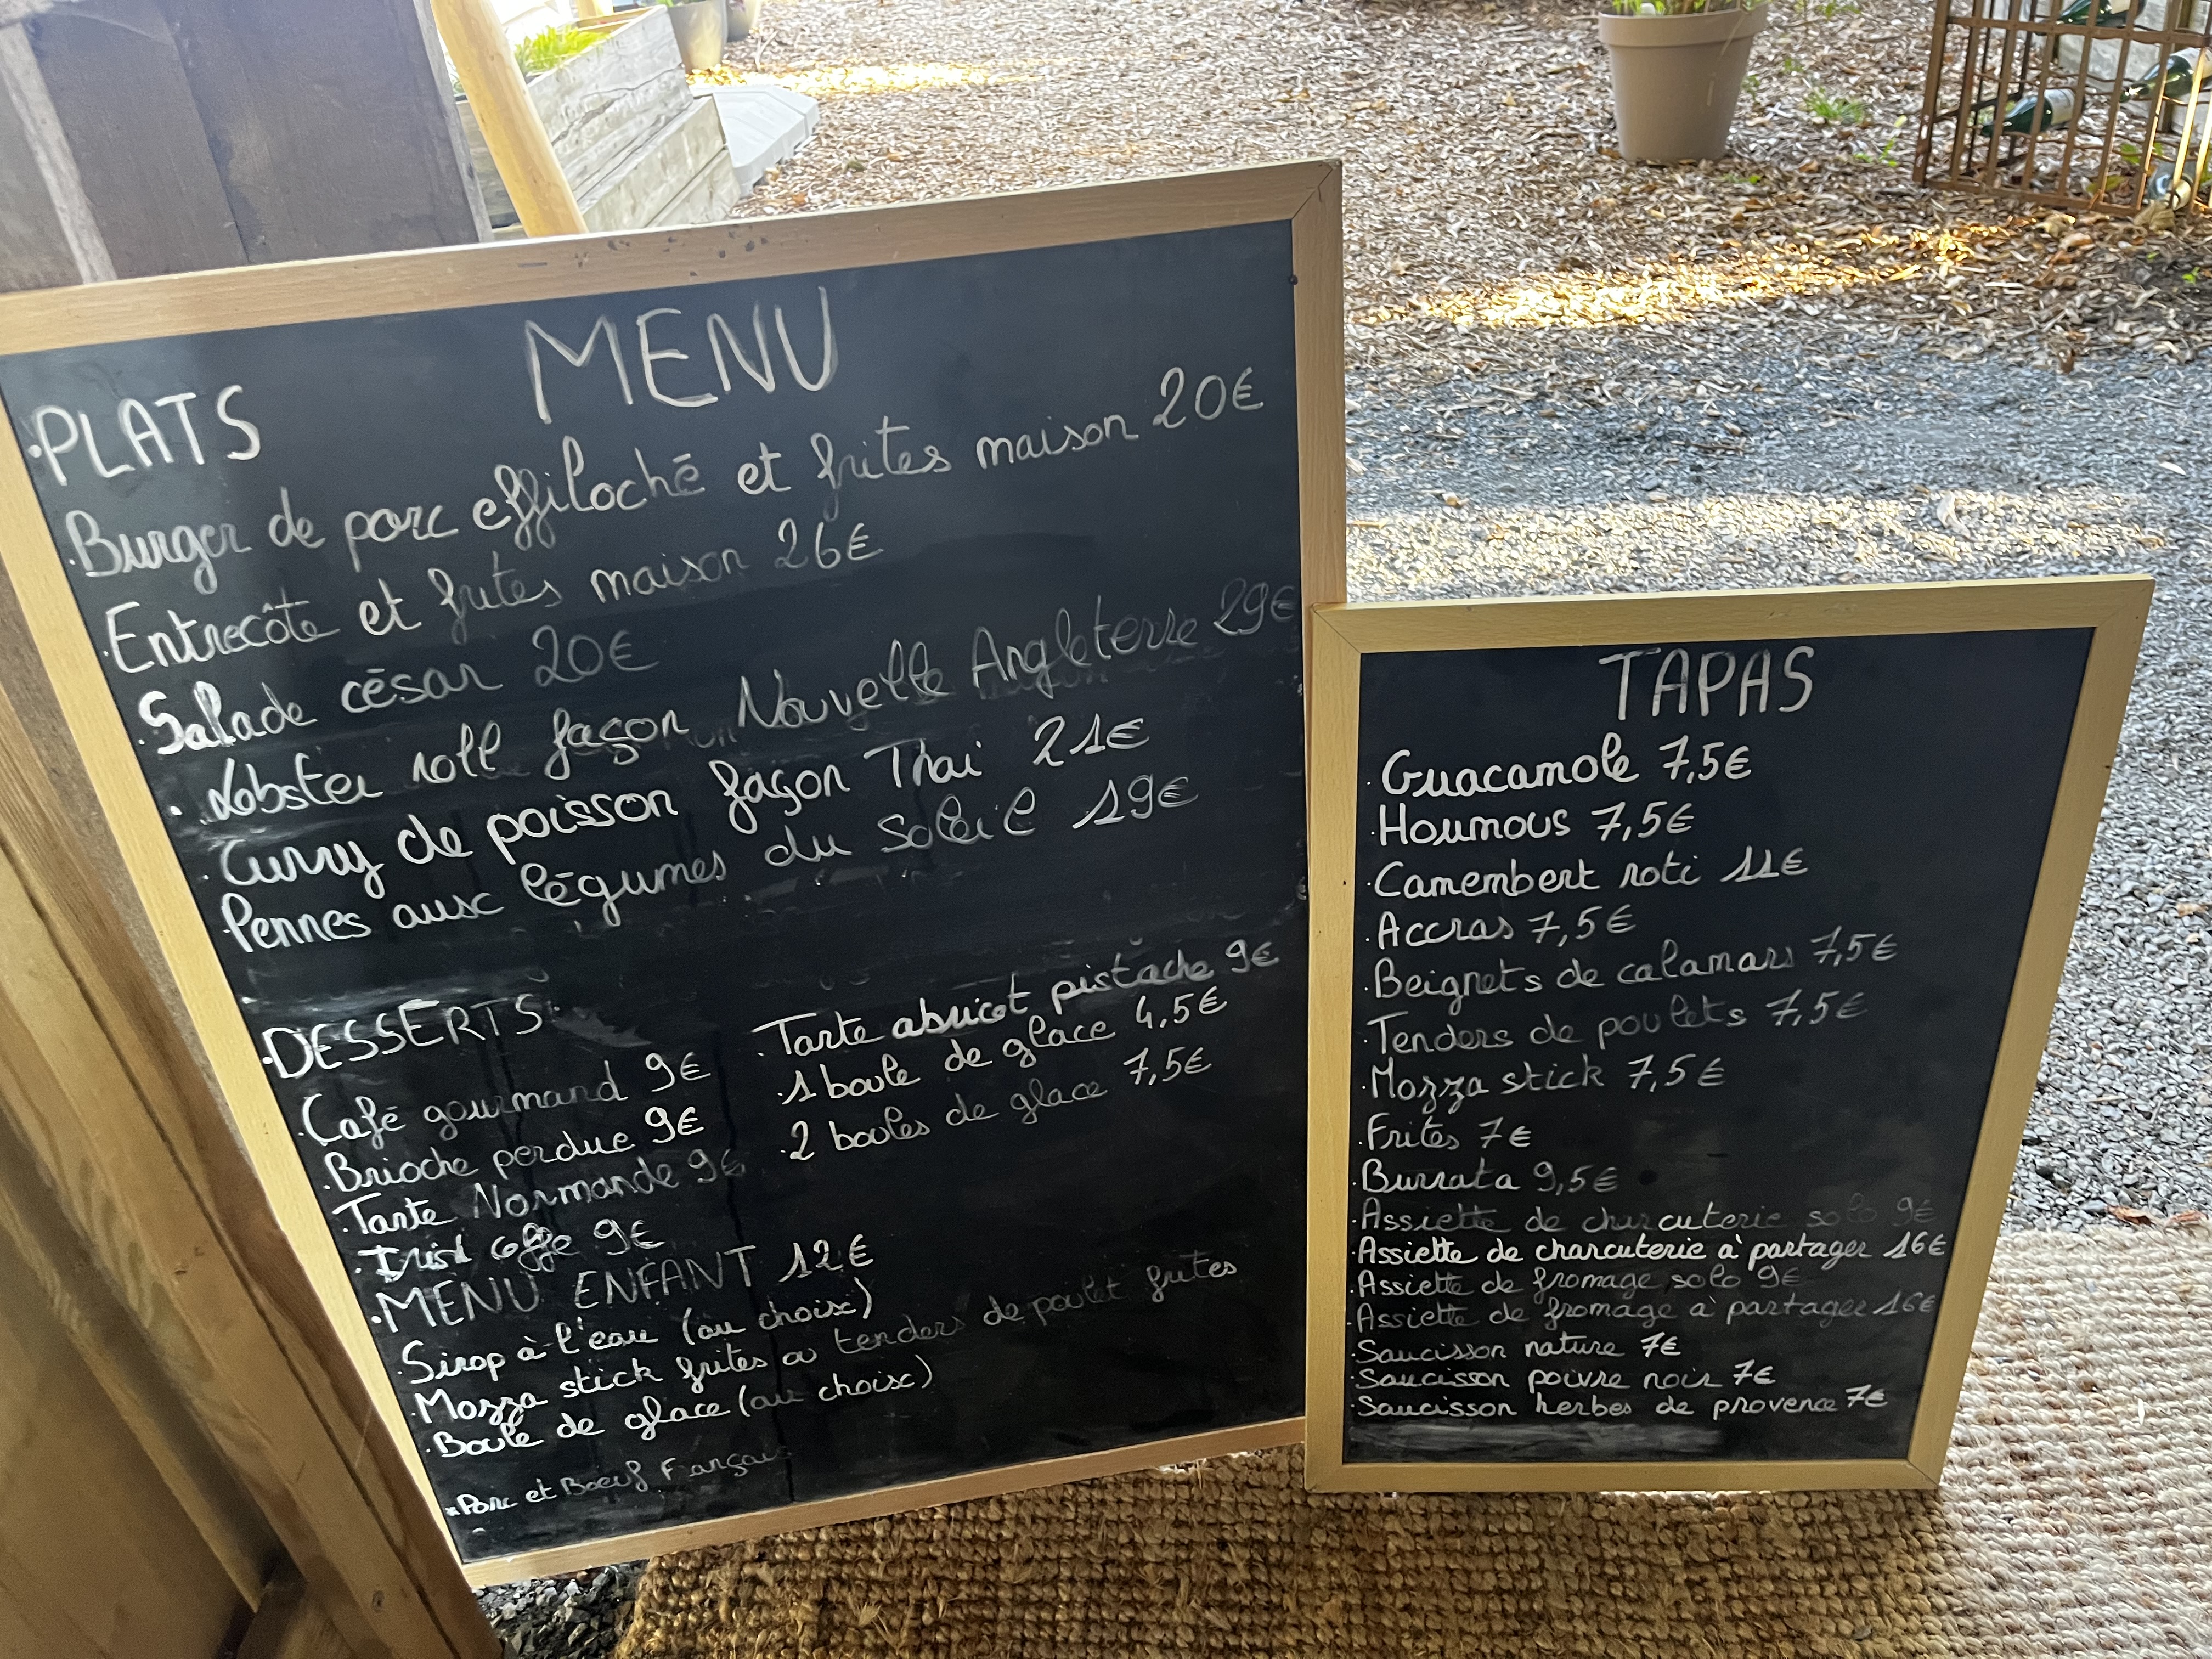 MENU
• PLATS
. Burger de porc effiloché et frites maison 20€
. Entrecôte et frites maison 26€
. Salade césar 20€
. Lobster roll façon Nouvelle Angleterre 29€
. Curry de poisson façon Thai 21€
. Pennes aux légumes du soleil 19€
• DESSERTS:
. Café gourmand 9€
. Brioche perdue 9€
. Tarte Normande 9€
. Irish coffe 9€
. Tarte abricot pistache 9€
. 1 boule de glace 4,5€
. 2 boules de glace 7,5€
• MENU ENFANT 12€
. Sirop à l'eau (au choix)
. Mozza stick frites ou tenders de poulet frites
. Boule de glace (au choix)
* Porc et Boeuf Français
TAPAS
. Guacamole 7,5€
. Houmous 7,5€
. Camembert roti 11€
. Accras 7,5€
. Beignets de calamars 7,5€
. Tenders de poulets 7,5€
. Mozza stick 7,5€
. Frites 7€
. Burrata 9,5€
. Assiette de charcuterie solo 9€
. Assiette de charcuterie à partager 16€
. Assiette de fromage solo 9€
. Assiette de fromage à partager 16€
. Saucisson nature 7€
. Saucisson poivre noir 7€
. Saucisson herbes de provence 7€